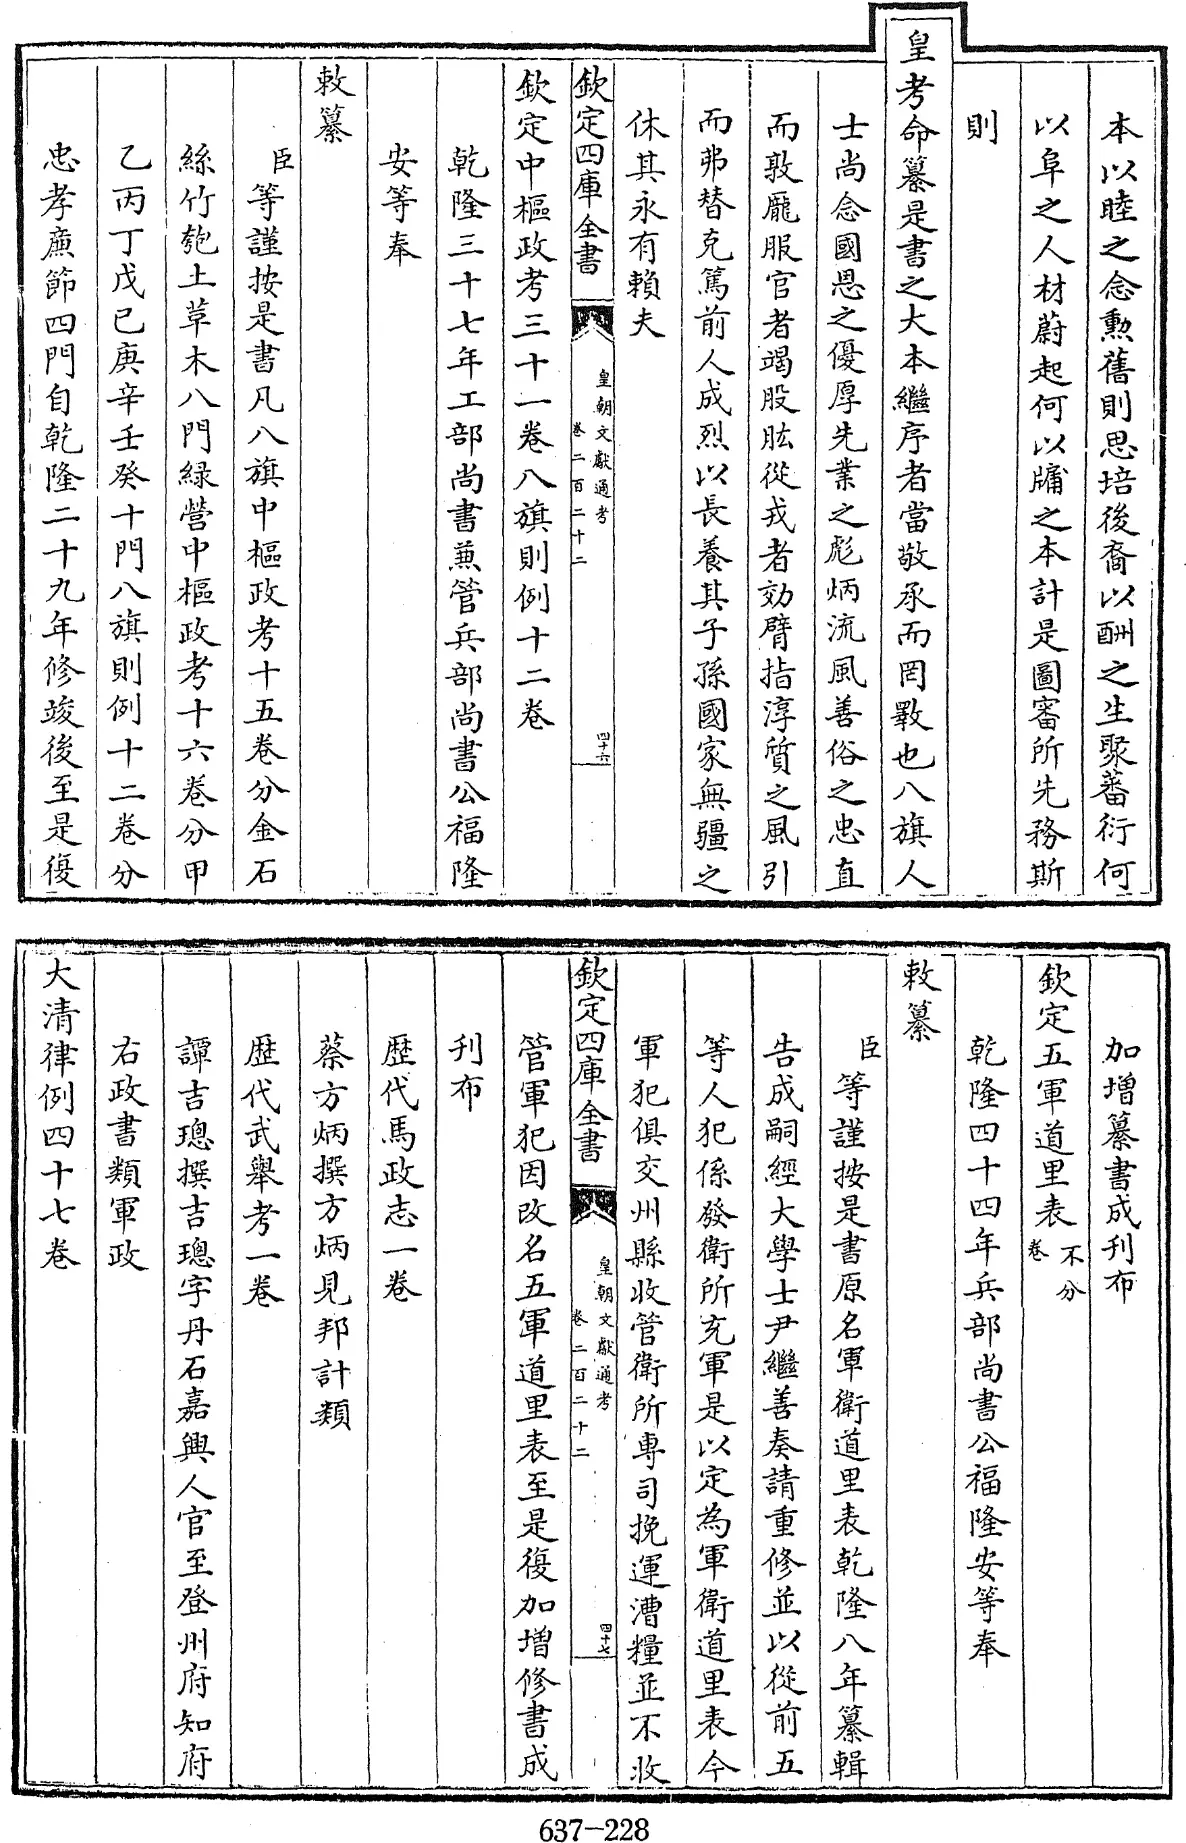 本以睦之念勲舊則思培後裔以酬之生聚蕃衍何
以阜之人材蔚起何以牖之本計是圖審所先務斯
則
皇考命纂是書之大本繼序者當敬承而罔斁也八旗人
士尚念國恩之優厚先業之彪炳流風善俗之忠直
而敦龎服官者竭股肱從戎者効臂指淳質之風引
而弗替克篤前人成烈以長養其子孫國家無疆之
休其永有賴夫
欽定四庫全書
皇朝文獻通考
卷二百二十二
四十六
欽定中樞政考三十一卷八旗則例十二卷
乾隆三十七年工部尚書兼管兵部尚書公福隆
安等奉
敕纂
臣等謹按是書凡八旗中樞政考十五卷分金石
絲竹匏土草木八門緑營中樞政考十六卷分甲
乙丙丁戊己庚辛壬癸十門八旗則例十二卷分
忠孝亷節四門自乾隆二十九年修竣後至是復
加增纂書成刊布
欽定五軍道里表不分卷
乾隆四十四年兵部尚書公福隆安等奉
敕纂
臣等謹按是書原名軍衛道里表乾隆八年纂輯
告成嗣經大學士尹繼善奏請重修並以從前五
等人犯係發衛所充軍是以定為軍衛道里表今
軍犯俱交州縣收管衛所専司挽運漕糧並不收
欽定四庫全書
皇朝文獻通考
卷二百二十二
四十七
管軍犯因改名五軍道里表至是復加增修書成
刋布
歴代馬政志一卷
蔡方炳撰方炳見邦計類
歴代武舉考一卷
譚吉璁撰吉璁字丹石嘉興人官至登州府知府
右政書類軍政
大清律例四十七卷
637-228